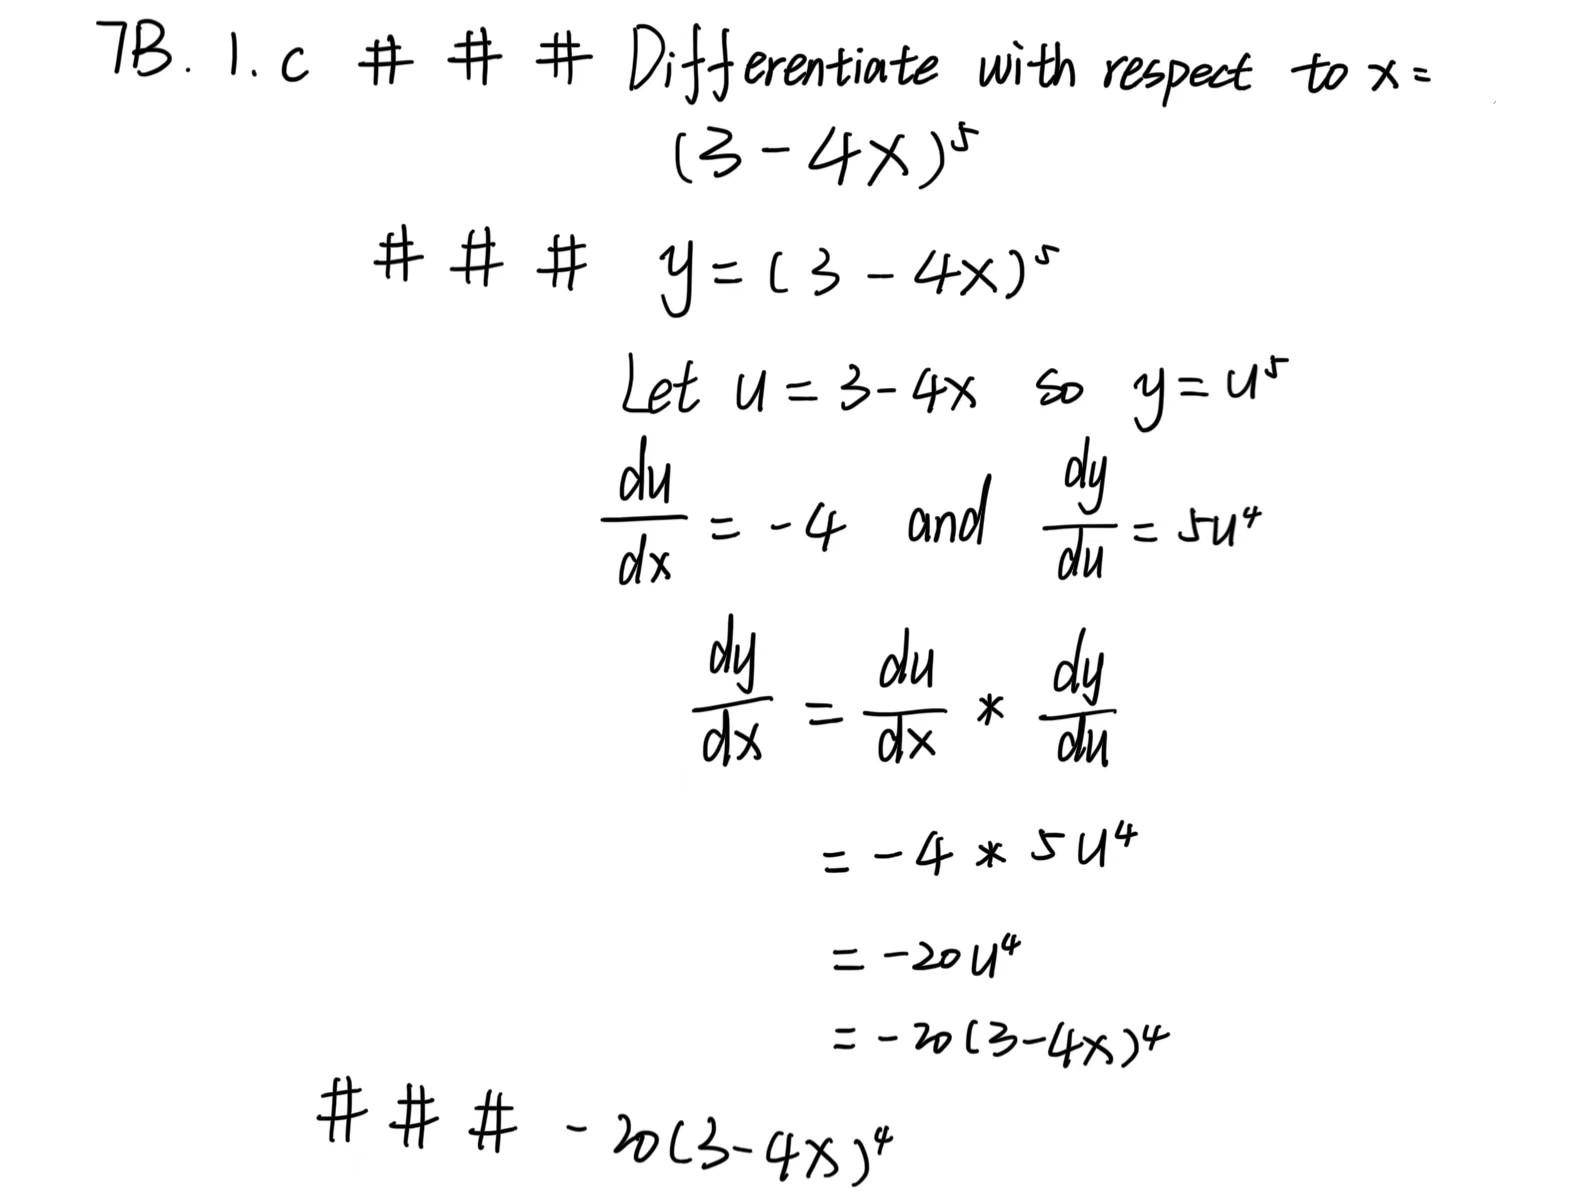 7B. 1. c # # # Differentiate with respect to x =
(3 - 4x)⁵
# # # y = (3 - 4x)⁵
Let u = 3 - 4x so y = u⁵
du/dx = -4 and dy/du = 5u⁴
dy/dx = du/dx * dy/du
= -4 * 5u⁴
= -20u⁴
= -20(3-4x)⁴
# # # -20(3-4x)⁴